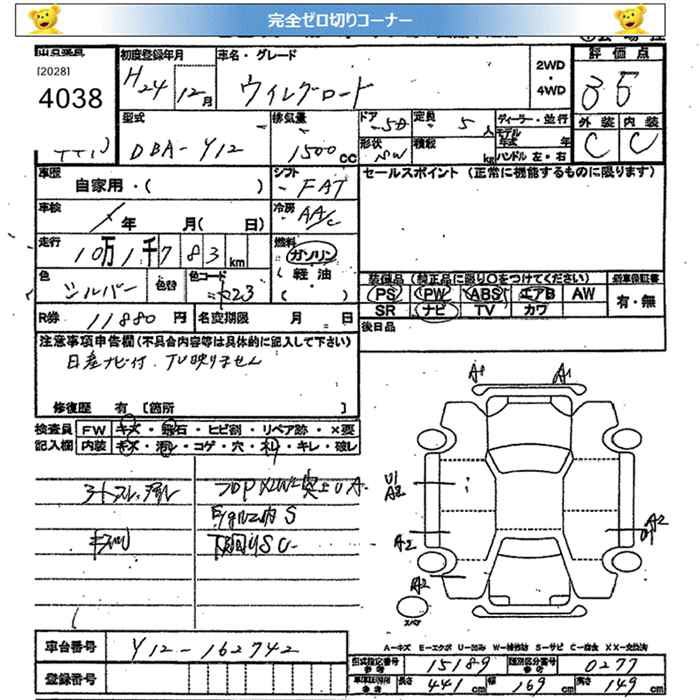 完全ゼロ切りコーナー
[2028]
4038
初度登録年月
H24 12月
車名・グレード
ウィングロード
2WD
・
4WD
評価点
35
型式
DBA-Y12
排気量
1500cc
ドア 5D
定員 5人
形状 SW
積載 kg
ディーラー・並行
モデル年式 年
ハンドル 左・右
外装 内装
C C
車歴
自家用・( )
シフト
FAT
セールスポイント (正常に機能するものに限ります)
車検
年 月( 日)
冷房
AA/C
走行
10万1千783km
燃料
ガソリン
(軽油)
色
シルバー
色替
色コード
K23
装備品 (純正品に限り○をつけてください)
新車保証書
PS PW ABS エアB AW
有・無
SR ナビ TV カワ
R券 11880円
名変期限 月 日
後日品
注意事項申告欄(不具合内容等は具体的に記入して下さい)
日産ナビ付. TV映りません
修復歴 有 [箇所 ]
検査員
記入欄
FW キズ・飛石・ヒビ割・リペア跡・×要
内装 キズ・汚れ・コゲ・穴・ネジ・キレ・破レ
A1 A1
U1
A2
A2
A2
A2
スペア
A-キズ E-エクボ U-凹み W-補修跡 S-サビ C-腐食 XX-交換済
車台番号
Y12-162742
登録番号
型式指定番号 参考 15189
類別区分番号 参考 0277
長さ 441cm
幅 169cm
高さ 149cm